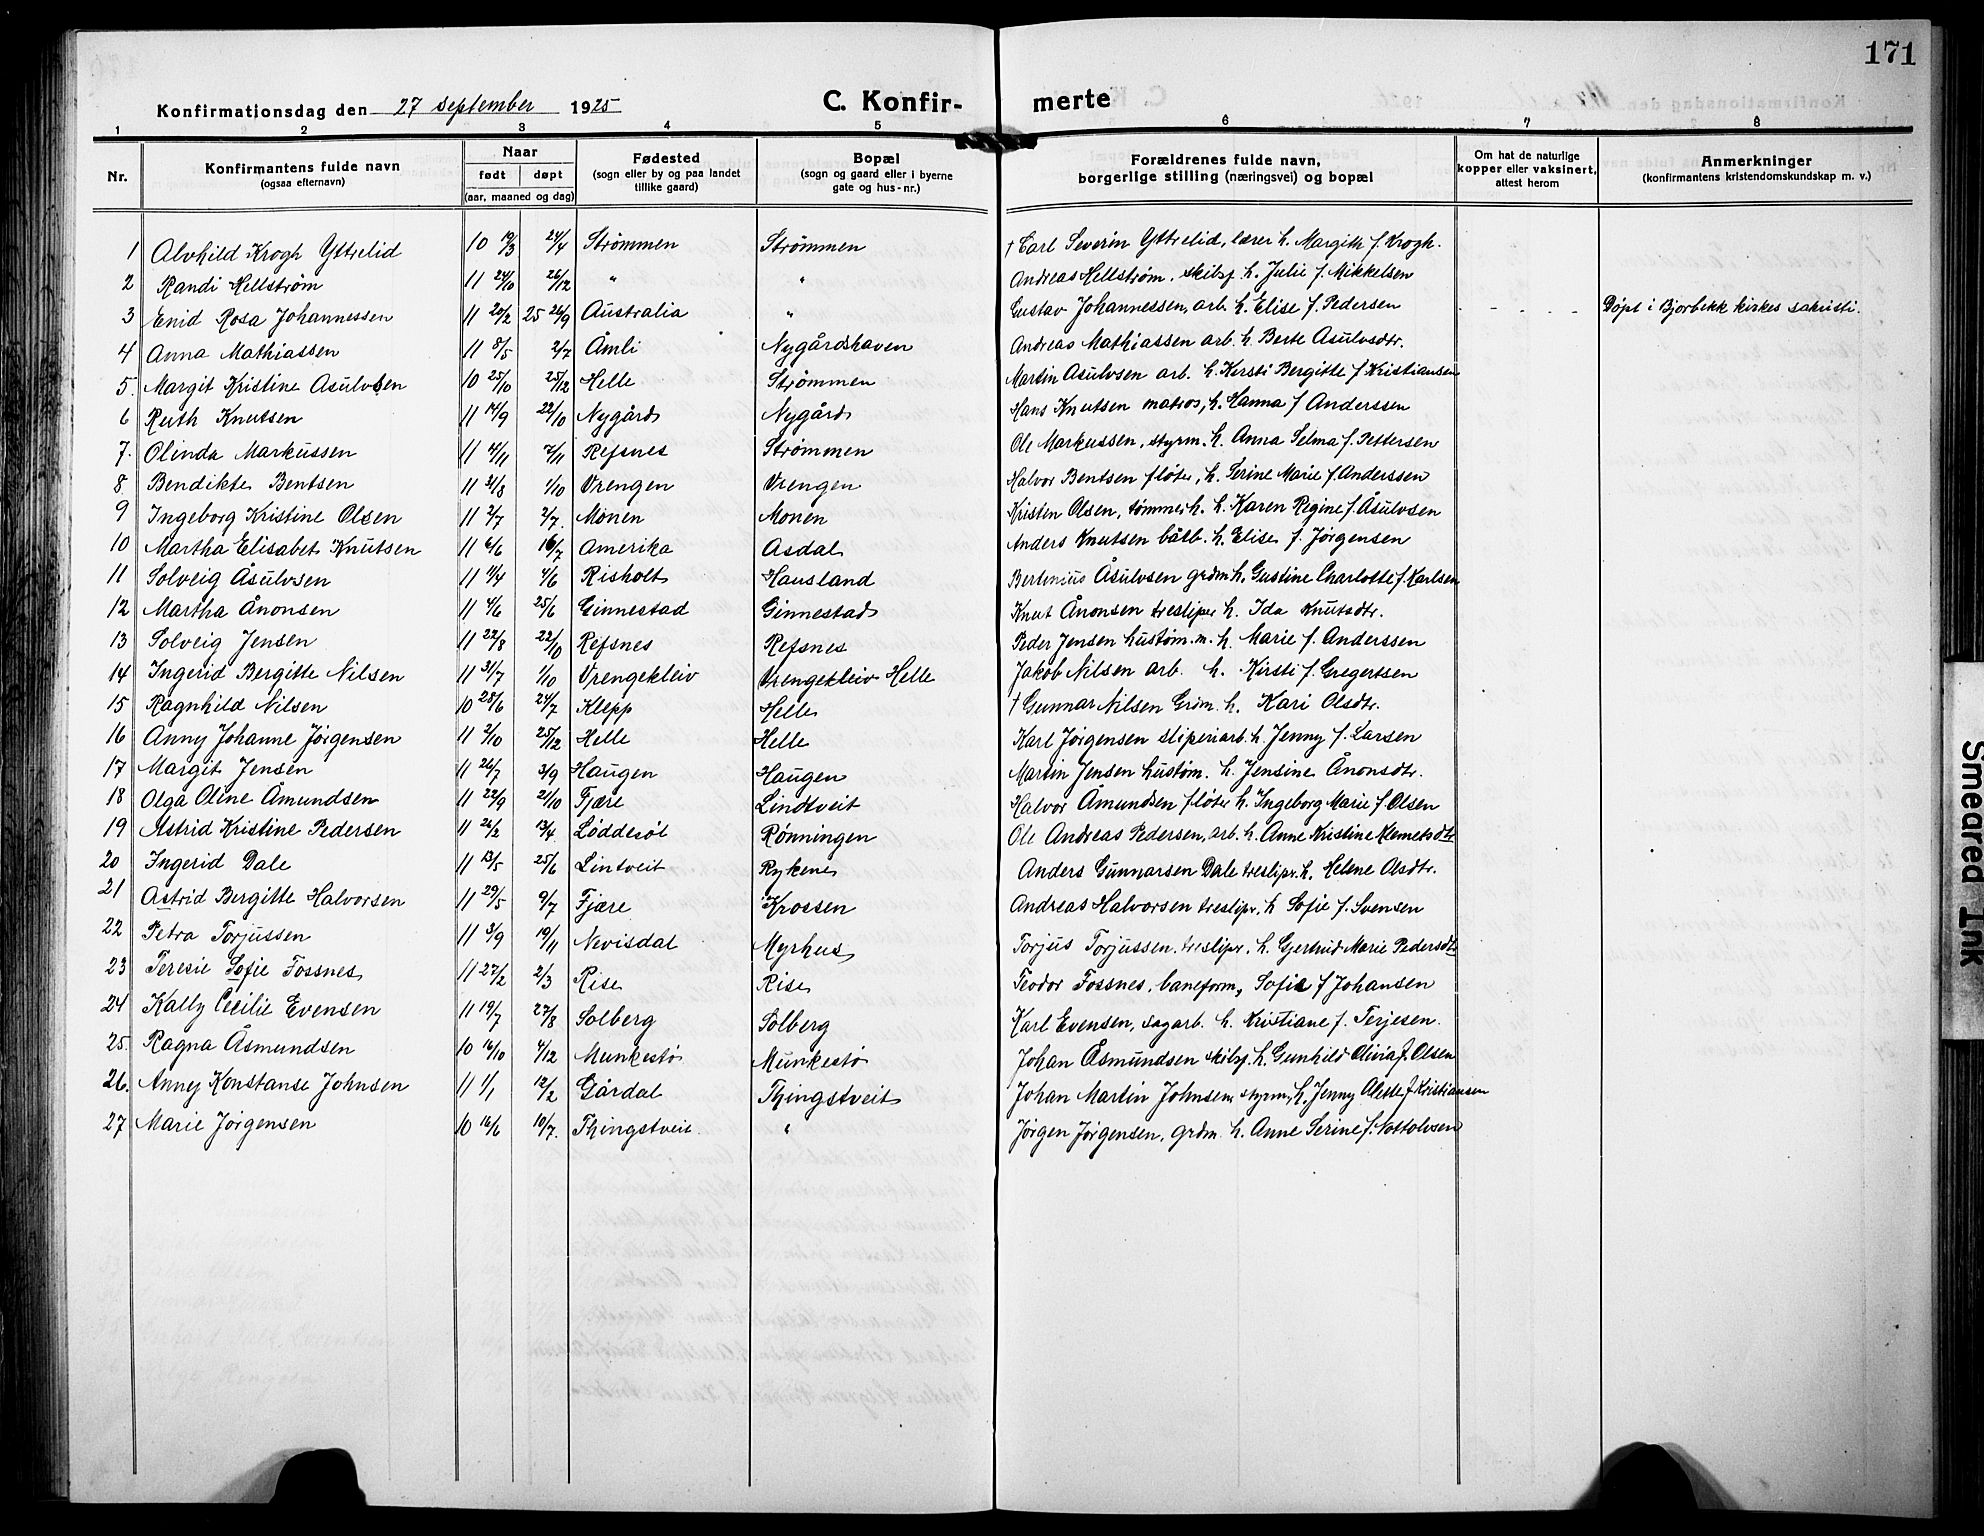 171
Konfirmationsdag den 27 september 1925 C. Konfir- merte
1 2 3 4 5 6 7 8
Nr. Konfirmantens fulde navn (ogsaa efternavn) Naar født døpt (aar, maaned og dag) Fødested (sogn eller by og paa landet tillike gaard) Bopæl (sogn og gaard eller i byerne gate og hus-nr.) Forældrenes fulde navn, borgerlige stilling (næringsvei) og bopæl Om hat de naturlige kopper eller vaksinert, attest herom Anmerkninger (konfirmantens kristendomskundskap m. v.)
1 Alvhild Krogh Yttrelid 10 19/3 24/4 Strømmen Strømmen † Carl Severin Yttrelid, lærer h. Margith f. Krogh.
2 Randi Hellstrøm 11 24/10 26/12 " " Andreas Hellstrøm, skibsf. h. Julie f. Mikkelsen
3 Enid Rosa Johannessen 11 20/2 25 26/9 Australia " Gustav Johannessen, arb. h. Elise f. Pedersen - - - - Døpt i Bjorbekk kirkes sakristi.
4 Anna Mathiassen 11 8/5 2/7 Åmli Nygårdshaven Andreas Mathiassen arb. h. Berte Asulvsdtr.
5. Margit Kristine Asulvsen 10 25/10 25/12 Helle Strømmen Martin Asulvsen arb. h. Kirsti Bergitte f. Kristiansen
6 Ruth Knutsen 11 14/9 22/10 Nygård Nygård Hans Knutsen matros, h. Hanna f Anderssen
7. Olinda Markussen 11 4/11 7/11 Refsnes Strømmen Ole Markussen, styrm. h. Anna Selma f. Pettersen
8 Bendikte Bentsen 11 31/8 1/10 Vrengen Vrengen Halvor Bentsen fløter, h. Serine Marie f. Anderssen
9 Ingeborg Kristine Olsen 11 2/7 2/7. Monen Monen Kristen Olsen, tømmerh. h. Karen Regine f. Åsulvsen
10 Martha Elisabet Knutsen 11 6/6 16/7 Amerika Asdal Anders Knutsen båtb. h. Elise f. Jørgensen
11 Solveig Åsulvsen 11 11/4 4/6 Risholt Hausland Bertenius Åsulvsen grdm h. Gustine Charlotte f. Karlsen
12 Martha Ånonsen 11 4/6 25/6 Ginnestad Ginnestad Knut Ånonsen tresliper h. Ida Knutsdtr.
13 Solveig Jensen 11 22/8 22/10 Refsnes Refsnes Peder Jensen hustøm.m. h. Marie f. Anderssen
14 Ingerid Bergitte Nilsen 11 31/7 1/10 Vrengekleiv Vrengekleiv Helle Jakob Nilsen arb. h. Kirsti f. Gregertsen
15 Ragnhild Nilsen 10 28/6 24/7 Klepp Helle † Gunnar Nilsen Grdm. h. Kari Olsdtr.
16 Anny Johanne Jørgensen 11 2/10 25/12 Helle Helle Karl Jørgensen sliperiarb. h. Jenny f. Larsen
17 Margit Jensen 11 26/7 3/9 Haugen Haugen Martin Jensen hustøm. h. Jensine Ånonsdtr.
18 Olga Oline Åmundsen 11 22/9 21/10 Fjære Lindtveit Halvor Åmundsen fløter h. Ingeborg Marie f Olsen
19 Astrid Kristine Pedersen 11 26/2 13/4 Løddesøl Rønningen Ole Andreas Pedersen, arb. h. Anne Kristine Klemetsdtr
20 Ingerid Dale 11 13/5 25/6 Lintveit Rykene Anders Gunnarsen Dale treslipr. h. Helene Olsdtr.
21 Astrid Bergitte Halvorsen 11 29/5 9/7 Fjære Krossen Andreas Halvorsen treslipr. h Sofie f. Svensen
22 Petra Torjussen 11 3/9 19/11 Nevisdal Myrhus Torjus Torjussen. treslipr. h. Gjertrud Marie Pedersdtr
23 Teresie Sofie Fossnes 11 27/2 2/3 Rise Rise Teodor Fossnes, baneform, Sofie f Johansen
24 Kally Cecilie Evensen 11 19/7 27/8 Solberg Solberg Karl Evensen, sagarb. h. Kristiane f. Terjesen.
25. Ragna Åsmundsen 10 16/10 4/12 Munkestø Munkestø Johan Åsmundsen skibsf. h. Gunhild Olivia f. Olsen
26. Anny Konstanse Johnsen 11 1/1 12/2 Gårdal Thingstveit Johan Martin Johnsen styrm, h. Jenny Alette f Kristiansen
27 Marie Jørgensen 10 16/6 10/7. Thingstveit. " Jørgen Jørgensen, grdm. h. Anne Serine f. Nottolvsen
Smeared Ink